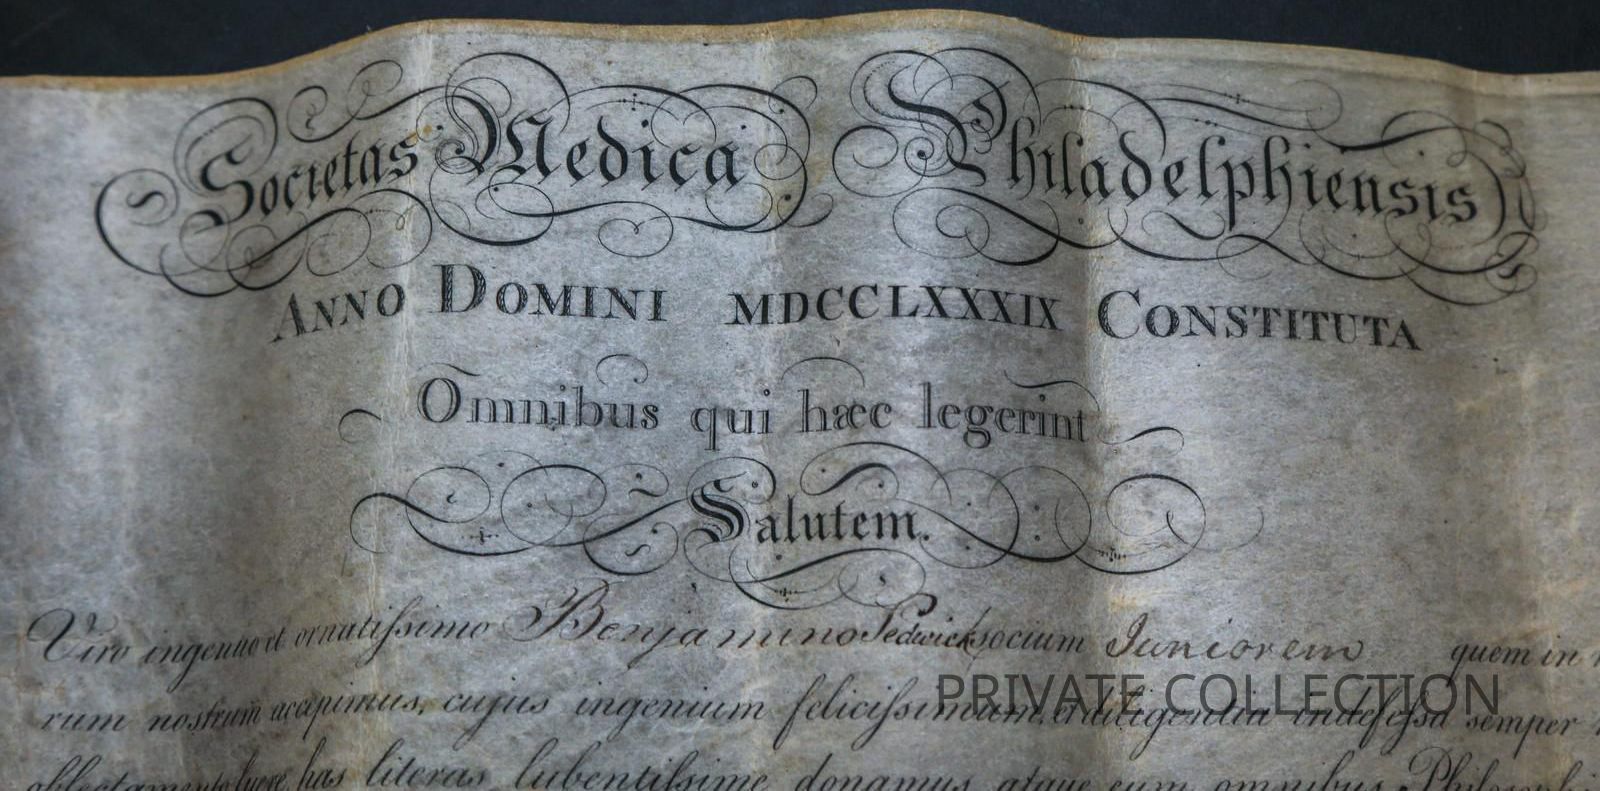 Societas Medica Philadelphiensis
ANNO DOMINI MDCCLXXXIX CONSTITUTA
Omnibus qui hæc legerint
Salutem.
Viro ingenuo et ornatiſsimo Benjamino Sedwick socium Juniorem quem in
rum nostrum accipimus, cujus ingenium feliciſsimum, et diligentia indefeſsa semper
oblectamento fuere, has literas lubentiſsime donamus atque eum omnibus
PRIVATE COLLECTION